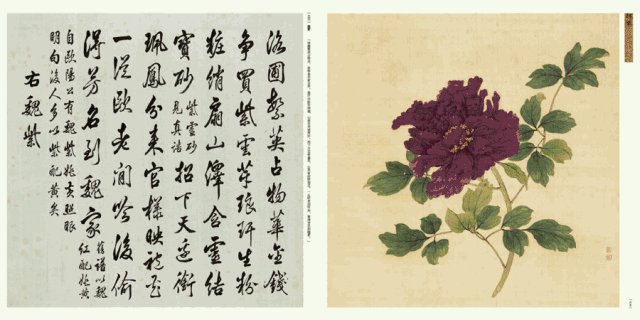 洛園繁英占物華金錢
争買紫雲芽琅玕生粉
粧綃扇山潭含靈結
寶砂紫靈砂見真誥招下天邊衛
珮鳳分來官樣映袍花
一從歐老閒吟後偷
得芳名到魏家舊譜以魏紅配姚黃
自歐陽公有魏紫姚黃照眼
明句後人多以紫配黃矣
右魏紫